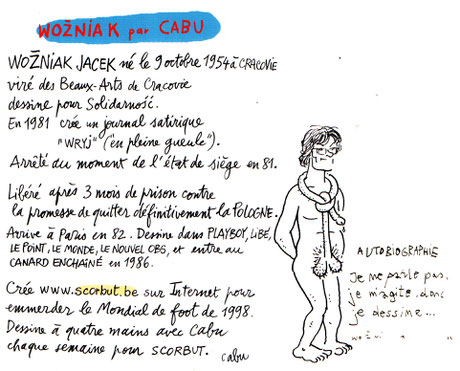 WOŹNIAK par CABU
WOŹNIAK JACEK né le 9 octobre 1954 à CRACOVIE
viré des Beaux-Arts de Cracovie
dessine pour Solidarność.
En 1981 crée un journal satirique
"WRYJ" ("en pleine gueule").
Arrêté du moment de l'état de siège en 81.
Libéré après 3 mois de prison contre
la promesse de quitter définitivement la POLOGNE.
Arrive à Paris en 82. Dessine dans PLAYBOY, LIBÉ,
LE POINT, LE MONDE, LE NOUVEL OBS, et entre au
CANARD ENCHAÎNÉ en 1986.
Crée www.scorbut.be sur Internet pour
emmerder le Mondial de foot de 1998.
Dessine à quatre mains avec Cabu
chaque semaine pour SCORBUT.
cabu
AUTOBIOGRAPHIE
Je ne parle pas,
je m'agite, donc
je dessine...